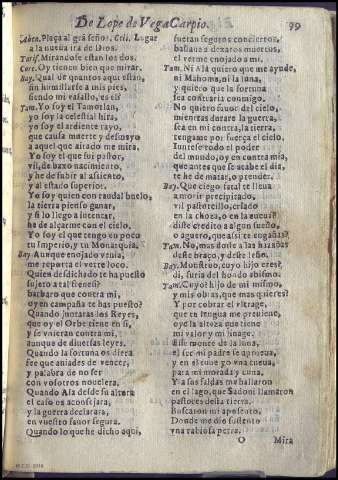 De Lope de Vega Carpio. 99
Laben. Plaça al grã señor. Celi. Lugar
a la nueua ira de Dios.
Tarif. Mirandose estan los dos.
Core. Oy tienen bien que mirar.
Bay. Qual de quantos aqui estan,
sin humillarse a mis pies,
siendo mi vasallo, es el?
Tam. Yo soy el Tamorlan,
yo soy la celestial hira,
yo soy el ardiente rayo,
que causa muerte y desmayo
a aquel que airado me mira.
Yo soy el que fui pastor,
vil, de baxo nacimiento,
y he de subir al assiento,
y al estado superior.
Yo soy quien con caudal buelo,
la tierra pienso ganar,
y si lo llego a intentar,
he de alçarme con el cielo.
Yo soy el que tengo en poco
tu Imperio, y tu Monarquia.
Bay. Aunque enojado venia,
me reporta el verte loco.
Quien desdichado te ha puesto
sujeto a tal frenesi?
barbaro que contra mi,
oy en campaña te has puesto?
Quando juntaras los Reyes,
que oy el Orbe tiene en si,
y se vnieran contra mi,
aunque de diuersas leyes.
Quando la fortuna os diera
fee que aniades de vencer,
y palabra de no ser
con vosotros nouelera.
Quando Ala desde su altura
el caso os aconsejara,
y la guerra declarara,
en vuestro fauor segura.
Quando lo que he dicho aqui,
fueran seguros conciertos,
bastaua a dexaros muertos,
el verme enojado a mi.
Tam. Ni Alà quiero que me ayude,
ni Mahoma, ni la luna,
y quiero que la fortuna
sea contraria conmigo.
No quiero fauor del cielo,
mientras durare la guerra,
sea en mi contra, la tierra,
tengame por fuerça el cielo.
Iuntese todo el poder
del mundo, oy en contra mia,
que antes que se acabe el dia,
te he de matar, o prender.
Bay. Que ciego fatal te lleua
amor precipitado,
vil pastorcillo, criado
en la choza, o en la
diste credito a algun sueño,
o aguero, que assi te engañas?
Tam. No, mas doile a las hazañas
deste braço, y deste leño.
Bay. Monstruo, cuyo hijo eres?
di, furia del hondo abismo.
Tam. Cuyo? hijo de mi mismo,
y mis obras, que mas quieres?
Y por cobrar el vltrage,
que tu lengua me preuiene,
oye la alteza que tiene
mi valor y mi linage.
Esse monte de la luna,
el ser mi padre se aprueua,
y en el tome yo vna cueua,
para mi morada y cuna.
Y a sus faldas me hallaron
en el lago, que Sadoni llamaron
pastores desta tierra.
Buscaron mi aposento,
Donde me dio sustento
vna rabiosa perra.
O Mira